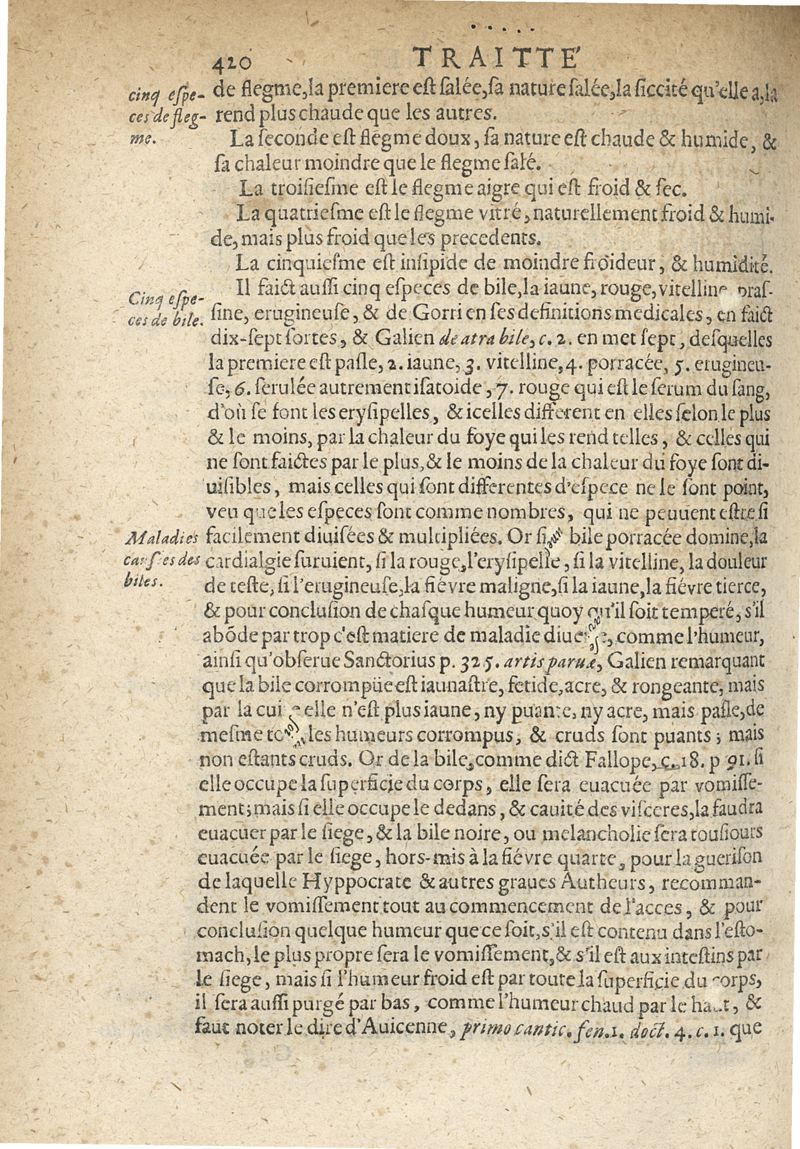 420 TRAITTÉ
cinq espe-
ces de fleg-
me.
de flegme, la premiere est salée, sa nature salée, la siccité qu'elle a, la
rend plus chaude que les autres.
La seconde est flegme doux, sa nature est chaude & humide, &
sa chaleur moindre que le flegme salé.
La troisiesme est le flegme aigre qui est froid & sec.
La quatriesme est le flegme vitré, naturellement froid & humi-
de, mais plus froid que les precedents.
La cinquiesme est insipide de moindre froideur, & humidité.
Cinq espe-
ces de bile.
Il faict aussi cinq especes de bile, la iaune, rouge, vitelline pras-
sine, erugineuse, & de Gorri en ses definitions medicales, en faict
dix-sept sortes, & Galien de atra bile, c. 2. en met sept, desquelles
la premiere est pasle, 2. iaune, 3. vitelline, 4. porracée, 5. erugineu-
se, 6. serulée autrement isatoide, 7. rouge qui est le serum du sang,
d'où se font les erysipelles, & icelles different en elles selon le plus
& le moins, par la chaleur du foye qui les rend telles, & celles qui
ne sont faictes par le plus, & le moins de la chaleur du foye sont di-
uisibles, mais celles qui sont differentes d'espece ne le sont point,
veu que les especes sont comme nombres, qui ne peuuent estre si
Maladies
causées des
biles.
facilement diuisées & multipliées. Or si bile porracée domine, la
cardialgie suruient, si la rouge, l'erysipelle, si la vitelline, la douleur
de teste, si l'erugineuse, la fiévre maligne, si la iaune, la fiévre tierce,
& pour conclusion de chasque humeur quoy qu'il soit temperé, s'il
abōde par trop c'est matiere de maladie diuerse, comme l'humeur,
ainsi qu'obserue Sanctorius p. 325. artis paruæ, Galien remarquant
que la bile corrompüe est iaunastre, fetide, acre, & rongeante, mais
par la cui e elle n'est plus iaune, ny puante, ny acre, mais pasle, de
mesme to les humeurs corrompus, & cruds sont puants; mais
non estants cruds. Or de la bile, comme dict Fallope, c. 18. p 91. si
elle occupe la superficie du corps, elle sera euacuée par vomisse-
ment; mais si elle occupe le dedans, & cauité des visceres, la faudra
euacuer par le siege, & la bile noire, ou melancholie sera tousiours
euacuée par le siege, hors-mis à la fiévre quarte, pour la guerison
de laquelle Hyppocrate & autres graues Autheurs, recomman-
dent le vomissement tout au commencement de l'acces, & pour
conclusion quelque humeur que ce soit, s'il est contenu dans l'esto-
mach, le plus propre sera le vomissement, & s'il est aux intestins par
le siege, mais si l'humeur froid est par toute la superficie du corps,
il sera aussi purgé par bas, comme l'humeur chaud par le haut, &
faut noter le dire d'Auicenne, primo cantic. fen. 1. doct. 4. c. 1. que